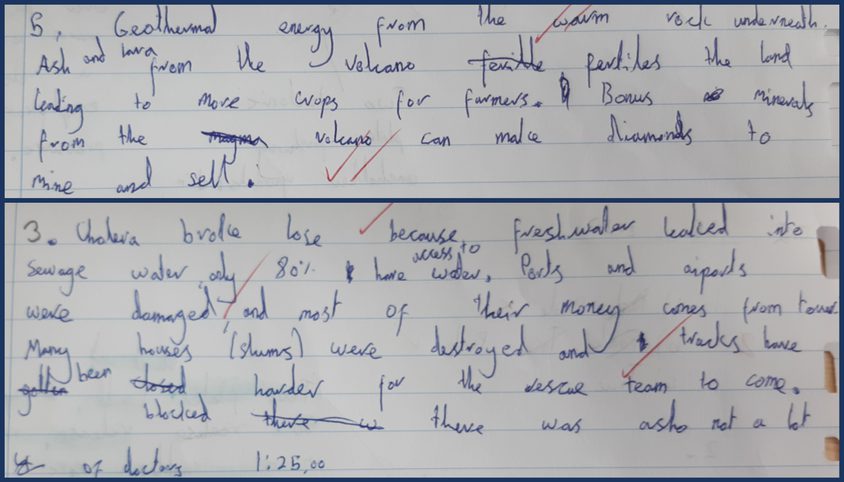 5, Geothermal energy from the warm rock underneath.
Ash and lava from the volcano fertile fertiles the land
leading to more crops for farmers. Bonus minerals
from the magma volcano can make diamonds to
mine and sell.
3. Cholera broke lose because freshwater leaked into
sewage water, only 80% have access to water. Ports and aiports
were damaged, and most of their money comes from
Many houses (slums) were destroyed and tracks have
been closed harder for the rescue team to come.
blocked there was not a lot
of doctors 1:25,00